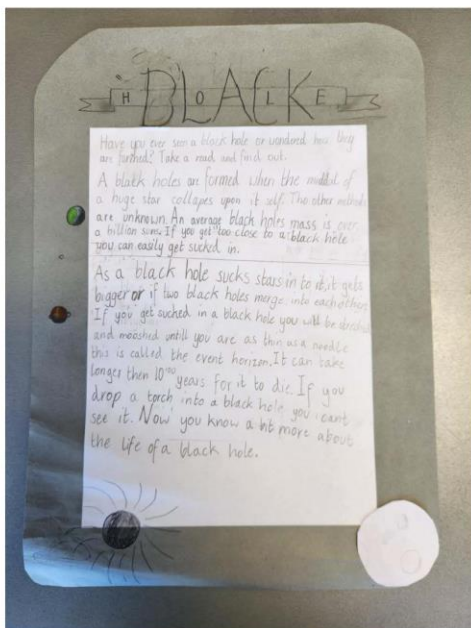 BLACK
HOLE
Have you ever seen a black hole or wondered how they
are formed? Take a read and find out.
A black holes are formed when the middle of
a huge star collapes upon it self. The other methods
are unknown. An average black holes mass is over
a billion suns. If you get too close to a black hole
you can easily get sucked in.
As a black hole sucks stars in to it, it gets
bigger or if two black holes merge into each other.
If you get sucked in a black hole you will be
and mooshed untill you are as thin as a noodle
this is called the event horizon. It can take
longer then 10¹⁰⁰ years for it to die. If you
drop a torch into a black hole you cant
see it. Now you know a bit more about
the life of a black hole.